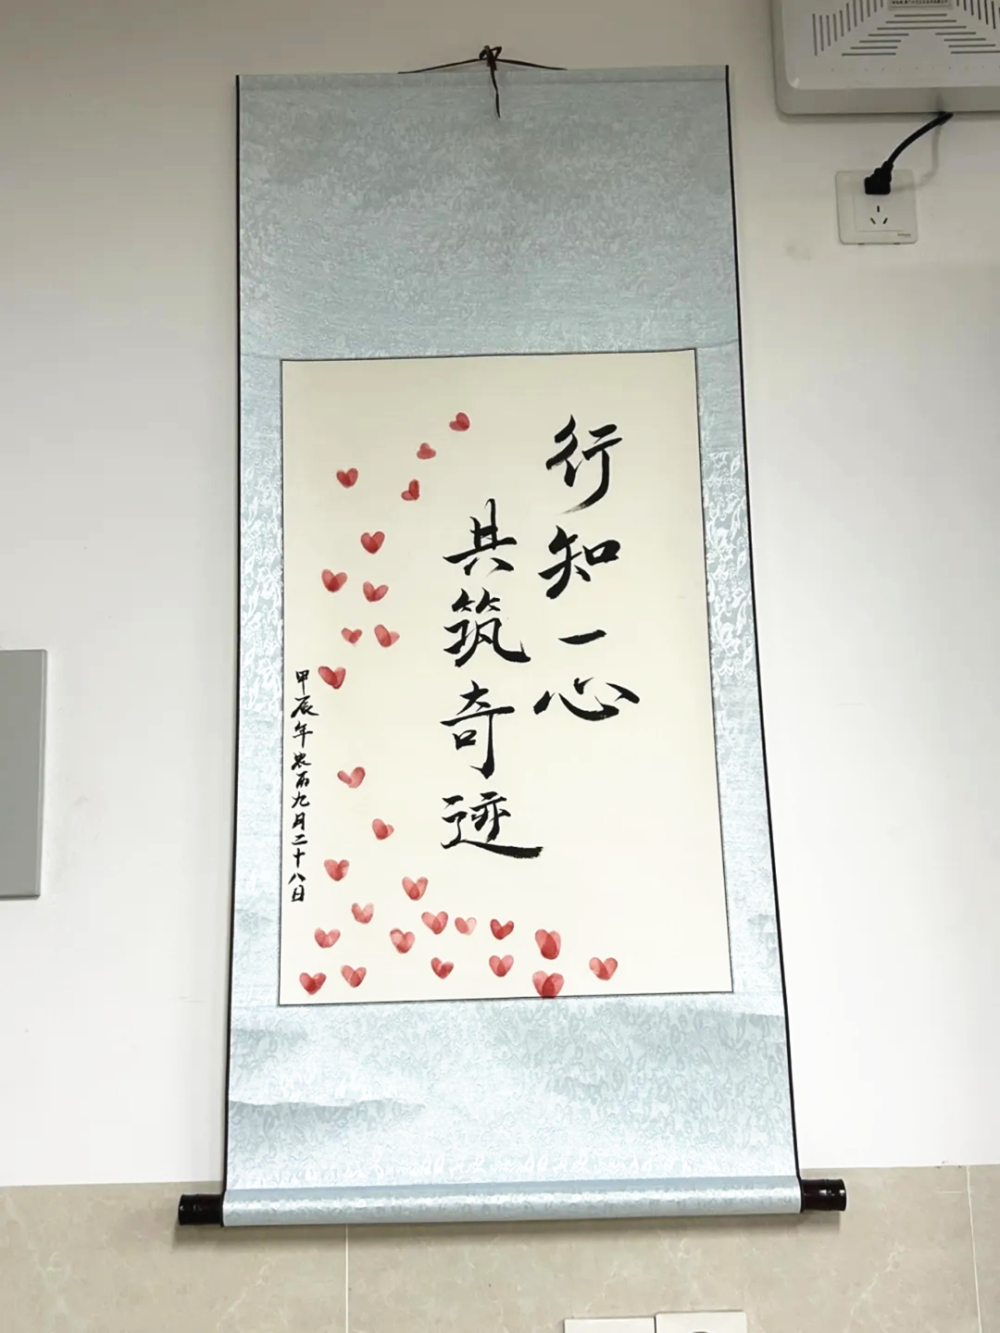 行知一心
共筑奇迹
甲辰年农历九月二十八日